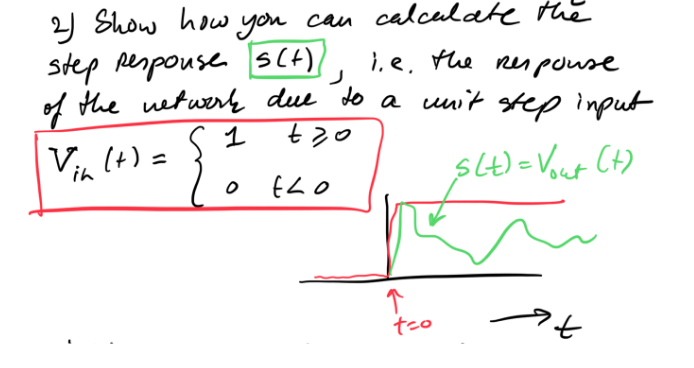 2) Show how you can calculate the
step response s(t), i.e. the response
of the network due to a unit step input
V_in (t) = { 1 t ≥ 0
0 t < 0
s(t) = V_out (t)
t=0
t